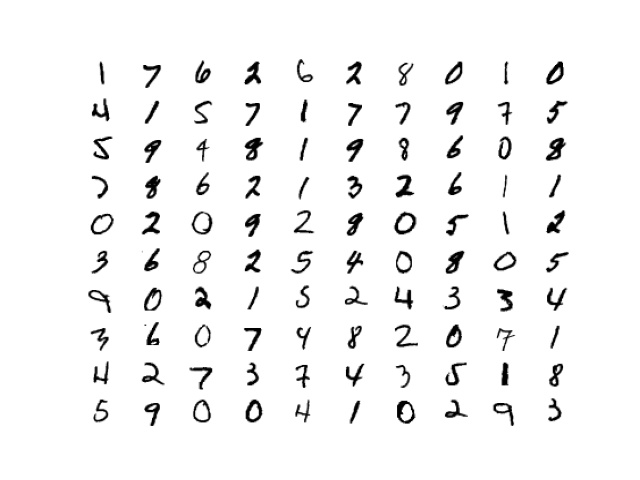 1 7 6 2 6 2 8 0 1 0
4 1 5 7 1 7 7 9 7 5
5 9 4 8 1 9 8 6 0 8
7 8 6 2 1 3 2 6 1 1
0 2 0 9 2 8 0 5 1 2
3 6 8 2 5 4 0 8 0 5
9 0 2 1 5 2 4 3 3 4
3 6 0 7 4 8 2 0 7 1
4 2 7 3 7 4 3 5 1 8
5 9 0 0 4 1 0 2 9 3